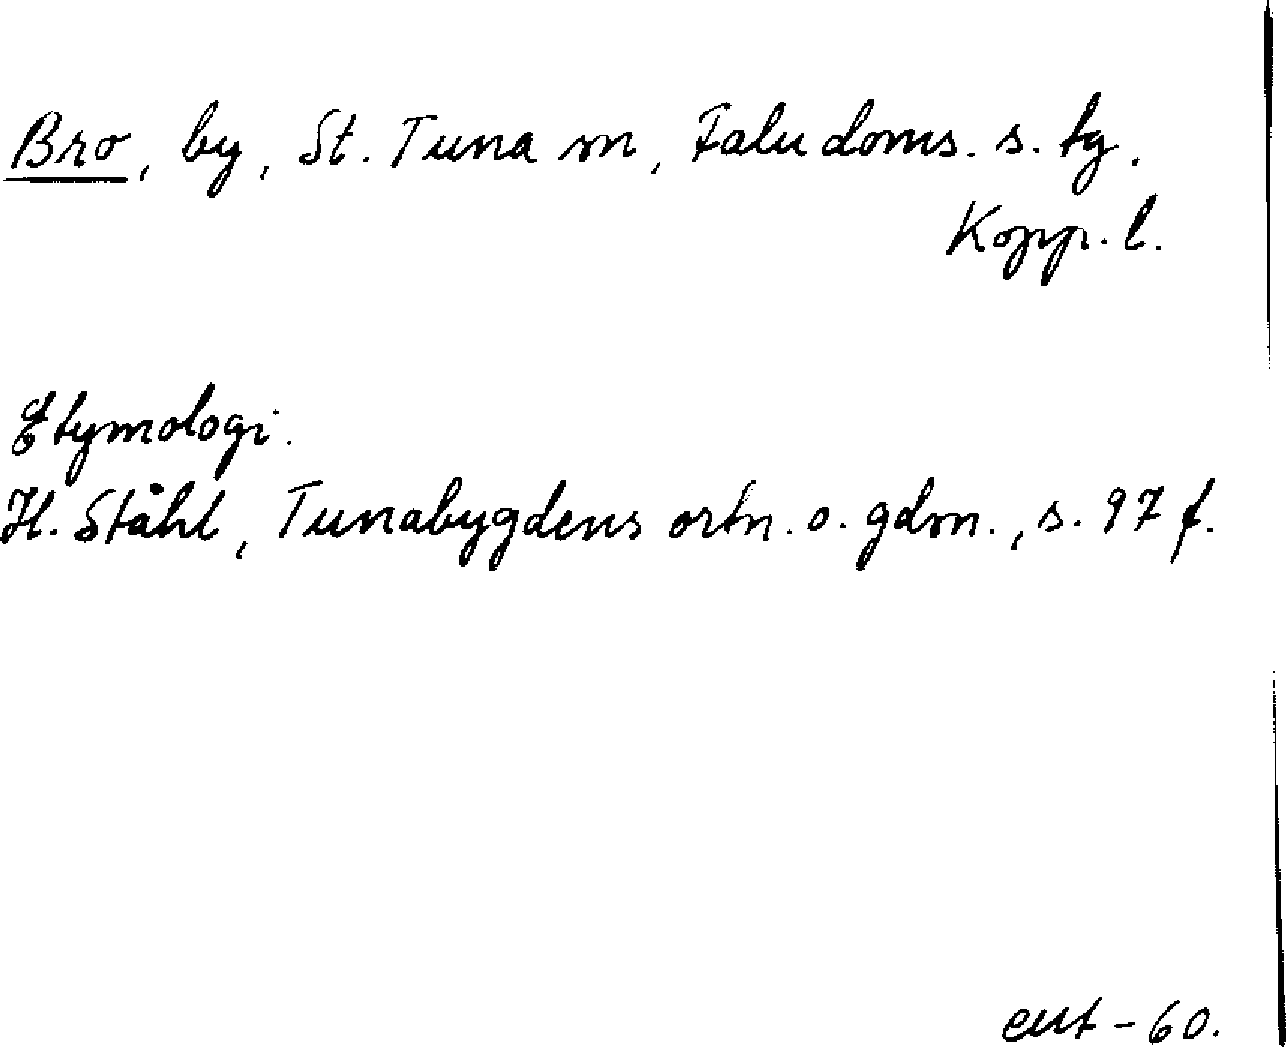 Bro, by, St. Tuna sn, Falu doms. s. tg.
Kopp. l.
Etymologi.
H. Ståhl, Tunabygdens ortn. o. gdsn., s. 97 f.
eut - 60.